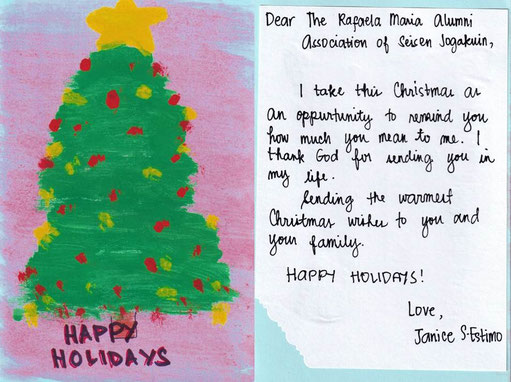 HAPPY
HOLIDAYS
Dear The Rafaela Maria Alumni
Association of Seisen Jogakuin,
I take this Christmas as
an oppurtunity to remind you
how much you mean to me. I
thank God for sending you in
my life.
Sending the warmest
Christmas wishes to you and
your family.
HAPPY HOLIDAYS!
Love,
Janice S. Estimo